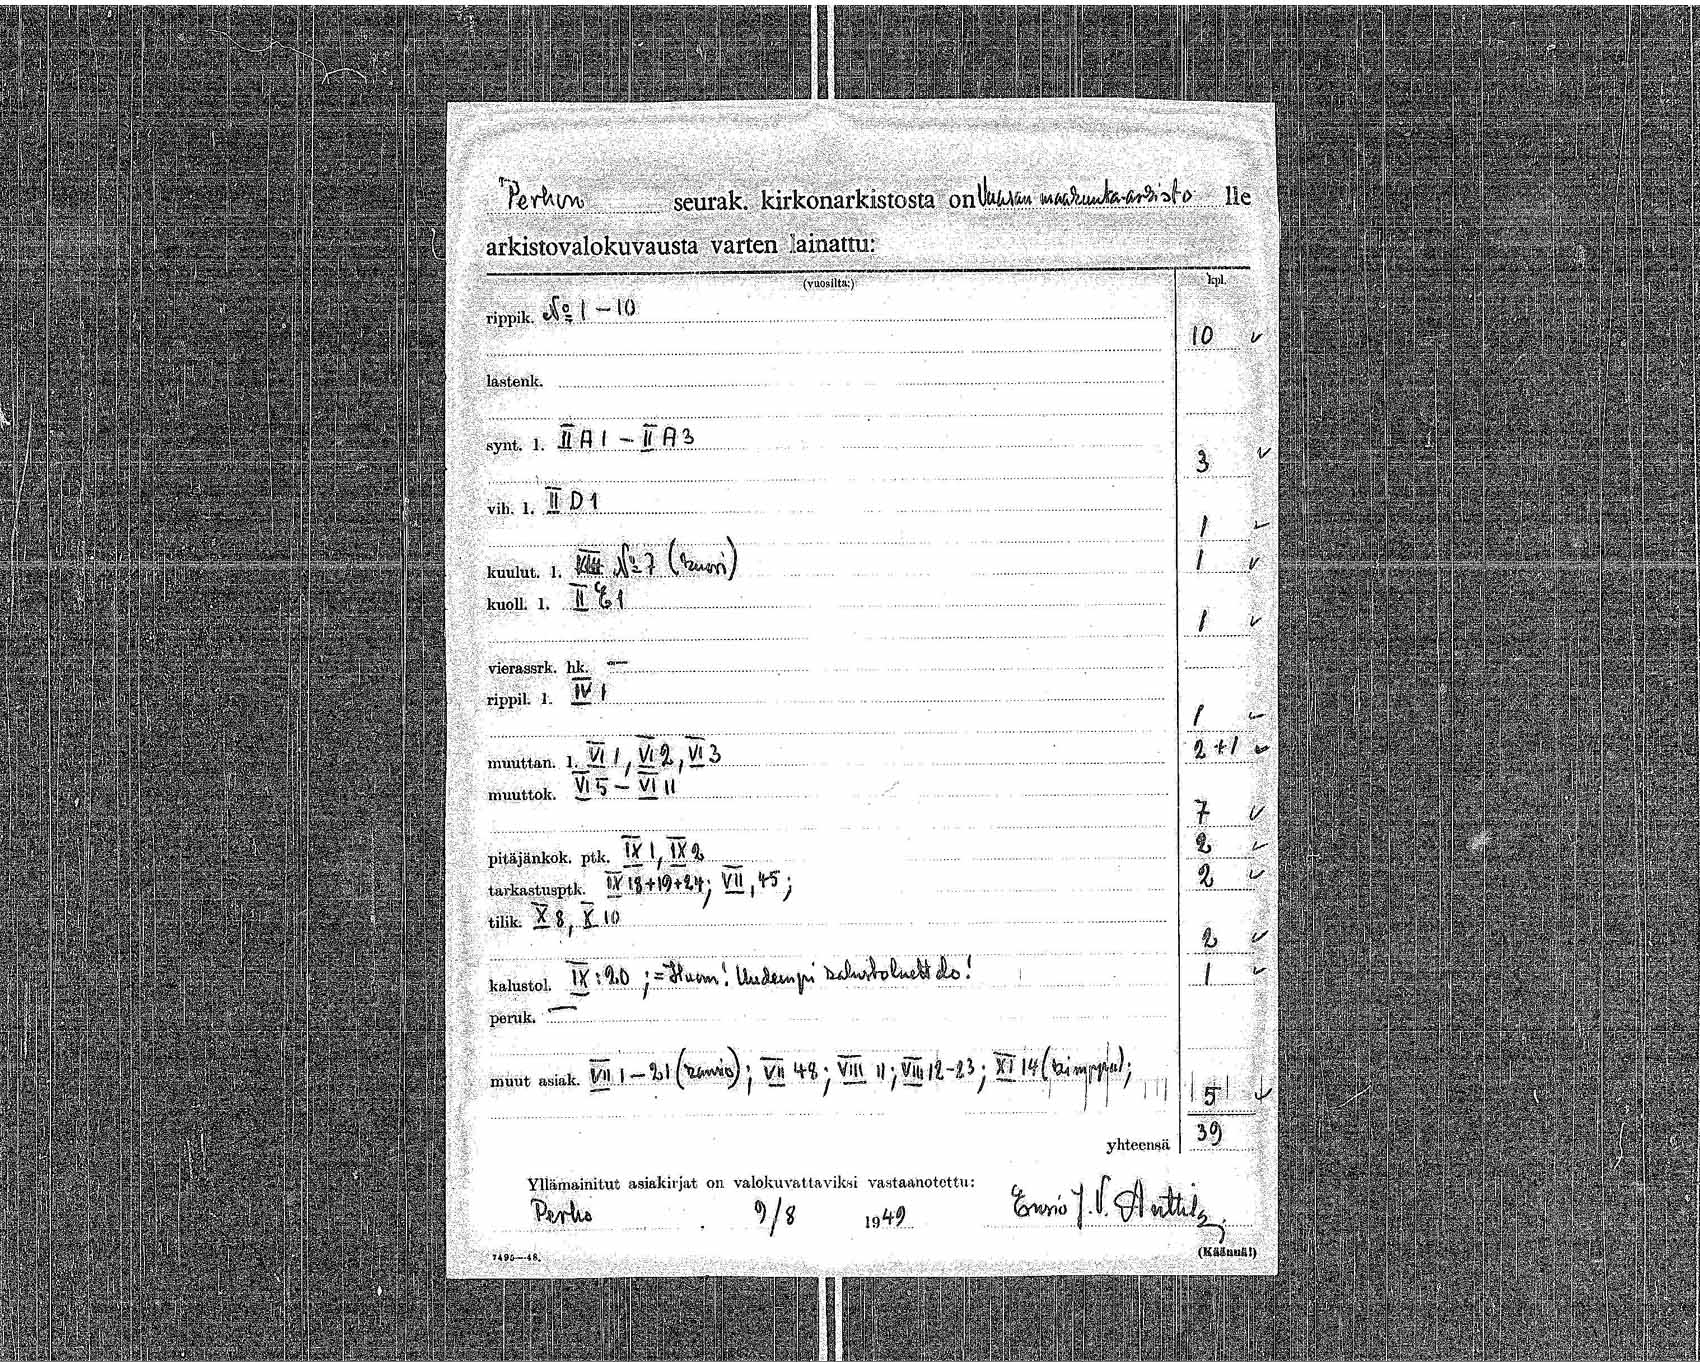 Perhon seurak. kirkonarkistosta on Vaasan maakunta-arkisto lle
arkistovalokuvausta varten lainattu:
(vuosilta:) kpl.
rippik. No 1 – 10
10 ✓
lastenk.
synt. l. II A 1 – II A 3
3 ✓
vih. l. II D 1
1 ✓
kuulut. l. No 7 (kuori) 1 ✓
kuoll. l. II E 1
1 ✓
vierassrk. hk. —
rippil. l. IV 1
1 ✓
muuttan. l. VI 1, VI 2, VI 3 2 + 1 ✓
muuttok. VI 5 – VI 11
7 ✓
pitäjänkok. ptk. IX 1, IX 2 2 ✓
tarkastusptk. IX 18+19+24; VII, 45; 2 ✓
tilik. X 8, X 10
2 ✓
kalustol. IX : 20 ; = Huom! Uudempi kalustoluettelo! 1 ✓
peruk. —
muut asiak. VII 1 – 21 (kansio); VII 48; VIII 11; VIII 12-23; XI 14 (kimppu);
5 ✓
yhteensä 39
Yllämainitut asiakirjat on valokuvattaviksi vastaanotettu:
Perho 9/8 1949 Ensio J. V. Anttila
7495—48. (Käännä!)